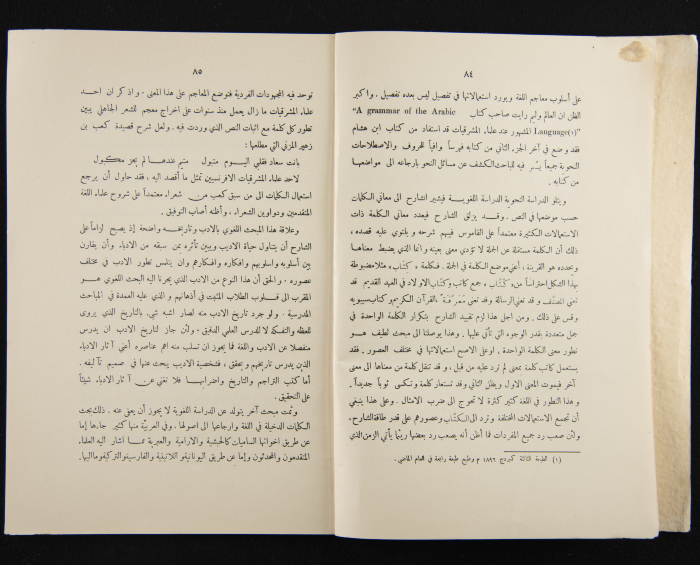 ٨٤
على أسلوب معاجم اللغة ويورد استعمالاتها في تفصيل ليس بعده تفصيل . واكبر
الظن ان العالم وليم رايت صاحب كتاب "A grammar of the Arabic
Language(١)" المشهور عند علماء المشرقيات قد استفاد من كتاب ابن هشام
فقد وضع في آخر الجزء الثاني من كتابه فهرساً وافياً للحروف والاصطلاحات
النحوية جميعاً يسّر فيه للباحث الكشف عن مسائل النحو بارجاعه الى مواضعها
من كتابه .
ويتلو الدراسة النحوية الدراسة اللغوية فيشير الشارح الى معاني الكلمات
حسب موضعها في النص . وقد يزلق الشارح فيعدد معاني الكلمة ذات
الاستعمالات الكثيرة معتمداً على القاموس فيبهم شرحه ويلتوي عليه قصده ،
ذلك أن الكلمة مستقلة عن الجملة لا تؤدي معنى بعينه وانما الذي يضبط معناها
ويحدده هو القرينة ، أعني موضع الكلمة في الجملة . فكلمة « كتاب » مثلا مضبوطة
بهذا الشكل احتراساً من « كُتّاب » جمع كاتب وكتّاب الاولاد في العهد القديم قد
تعني المصنف وقد تعني الرسالة وقد تعني القرآن الكريم وكتاب سيبويه
وقس على ذلك . ومن اجل هذا لزم تقييد الشارح بتكرار الكلمة الواحدة في
جمل متعددة بقدر الوجوه التي تأتي عليها . وهذا يوصلنا الى مبحث لطيف هو
تطور معنى الكلمة الواحدة ، او على الاصح استعمالاتها في مختلف العصور . فقد
يستعمل كاتب كلمة بمعنى لم ترد عليه من قبل ، وقد تنقل كلمة من معناها الى معنى
آخر فيموت المعنى الاول ويظل الثاني وقد تستعار كلمة وتكسى ثوباً جديداً .
وهذا التطور في اللغة كثير كثرة لا تحوج الى ضرب الامثال . وعلى هذا ينبغي
أن تجمع الاستعمالات المختلفة وترد الى الكتّاب وعصورهم على قدر طاقة الشارح ،
ولئن صعب رد جميع المفردات فما أظن أنه يصعب رد بعضها ريثما يأتي الزمن الذي
(١) الطبعة الثالثة كمبردج ١٨٩٦ م وطبع طبعة رابعة في العام الماضي .
٨٥
توحد فيه المجهودات الفردية فتوضع المعاجم على هذا المعنى . واذكر ان احد
علماء المشرقيات ما زال يعمل منذ سنوات على اخراج معجم للشعر الجاهلي يبين
تطور كل كلمة مع اثبات النص الذي وردت فيه . ولعل شرح قصيدة كعب بن
زهير المزني التي مطلعها :
بانت سعاد فقلبي اليوم متبول متيم عندها لم يجز مكبول
لاحد علماء المشرقيات الافرنسيين تمثل ما أقصد اليه . فقد حاول أن يرجع
استعمال الكلمات الى من سبق كعب من شعراء معتمداً على شروح علماء اللغة
المتقدمين ودواوين الشعراء ، وأظنه أصاب التوفيق .
وعلاقة هذا المبحث اللغوي بالادب وتاريخه واضحة إذ يصبح لزاماً على
الشارح أن يتناول حياة الاديب ويبين تأثره بمن سبقه من الادباء وأن يقارن
بين أسلوبه واسلوبهم وافكاره وافكارهم وان يلتمس تطور الادب في مختلف
عصوره . والحق أن هذا النوع من الادب الذي يجرنا اليه البحث اللغوي هو
المقرب الى قلوب الطلاب المثبت في أذهانهم والذي عليه العمدة في المباحث
المدرسية . ولو جرد تاريخ الادب منه لصار اشبه شيء بالتاريخ الذي يروى
للعظة والتفكه لا للدرس العلمي الدقيق . ولئن جاز لتاريخ الادب ان يدرس
منفصلا عن الادب واللغة فما يجوز ان تسلب منه اهم عناصره أعني آثار الادباء
الذين يدرس تاريخهم ويحقق ، فشخصية الاديب يبحث عنها في صميم تآليفه .
أما كتب التراجم والتاريخ واضرابها فلا تغني عن آثار الادباء شيئاً
على التحقيق .
وثمت مبحث آخر يتولد عن الدراسة اللغوية لا يجوز أن يعي عنه . ذلك بحث
الكلمات الدخيلة في اللغة وارجاعها الى اصولها . وفي العربية منها كثير جاءها إما
عن طريق اخواتها الساميات كالحبشية والارامية والعبرية مما اشار اليه العلماء
المتقدمون والمحدثون وإما عن طريق اليونانية واللاتينية والفارسية والتركية وما اليها .